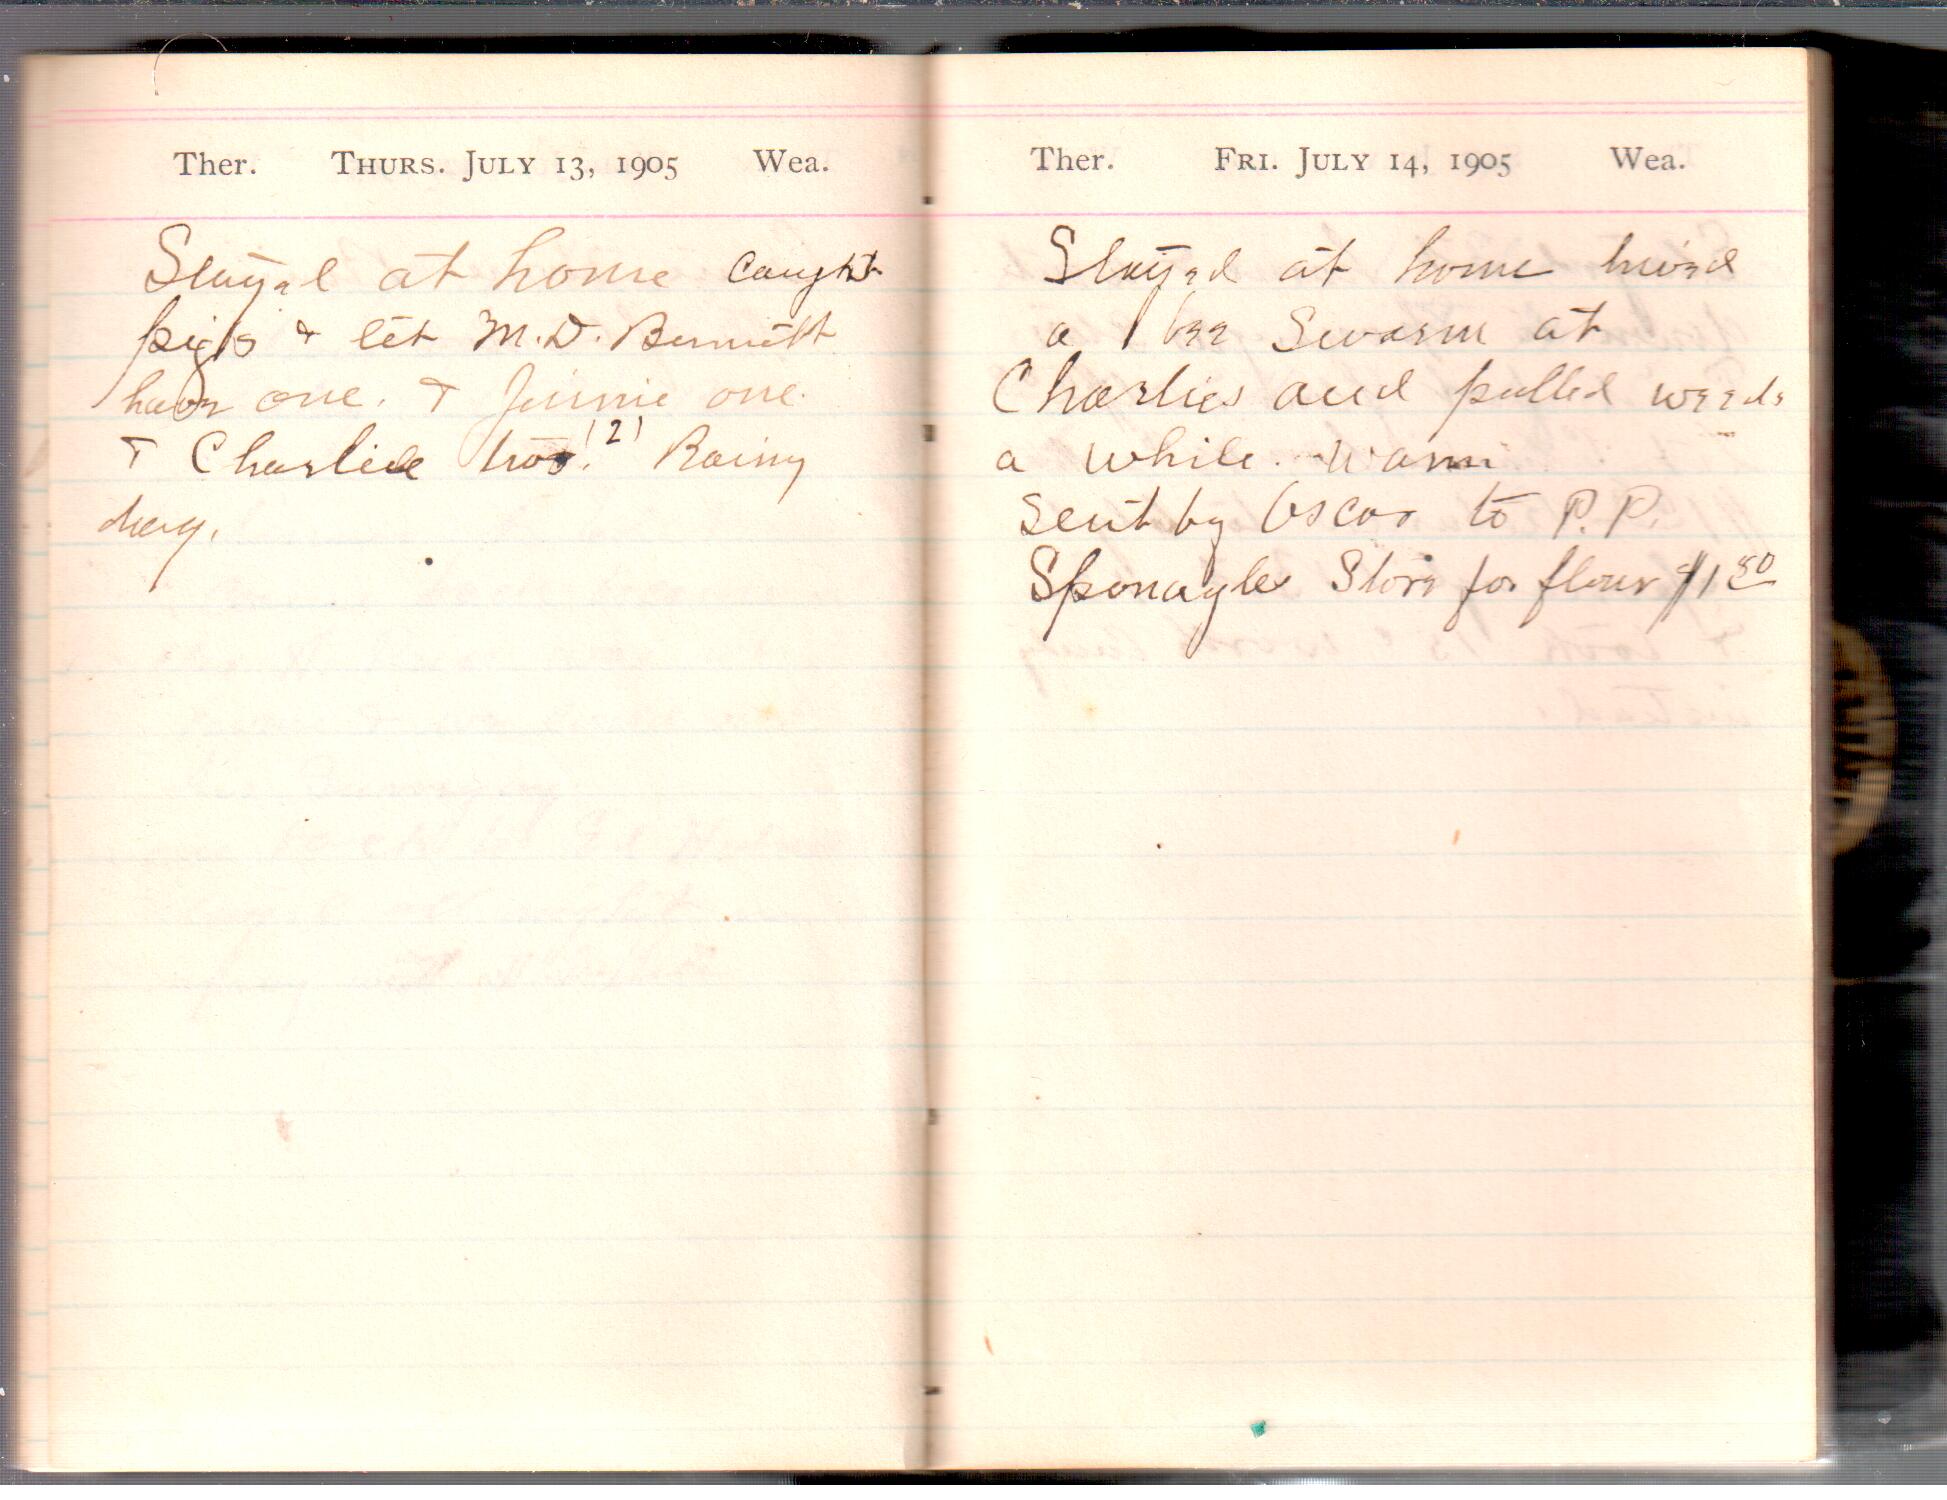 Ther. THURS. JULY 13, 1905 Wea.
Stayed at home caught
pigs & let M.D. Bennett
have one. & Jinnie one.
& Charlie two. (2) Rainy
day.
Ther. FRI. JULY 14, 1905 Wea.
Stayed at home hived
a bee Swarm at
Charlies and pulled weeds
a while. Warm
Sent by Oscar to P.P.
Sponagles Store for flour $1 50